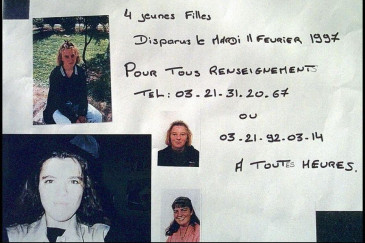 4 jeunes Filles
Disparus le MARDI 11 FEVRIER 1997
POUR TOUS RENSEIGNEMENTS
TEL: 03-21-31.20.67
OU
03-21-92-03-14
A TOUTES HEURES.